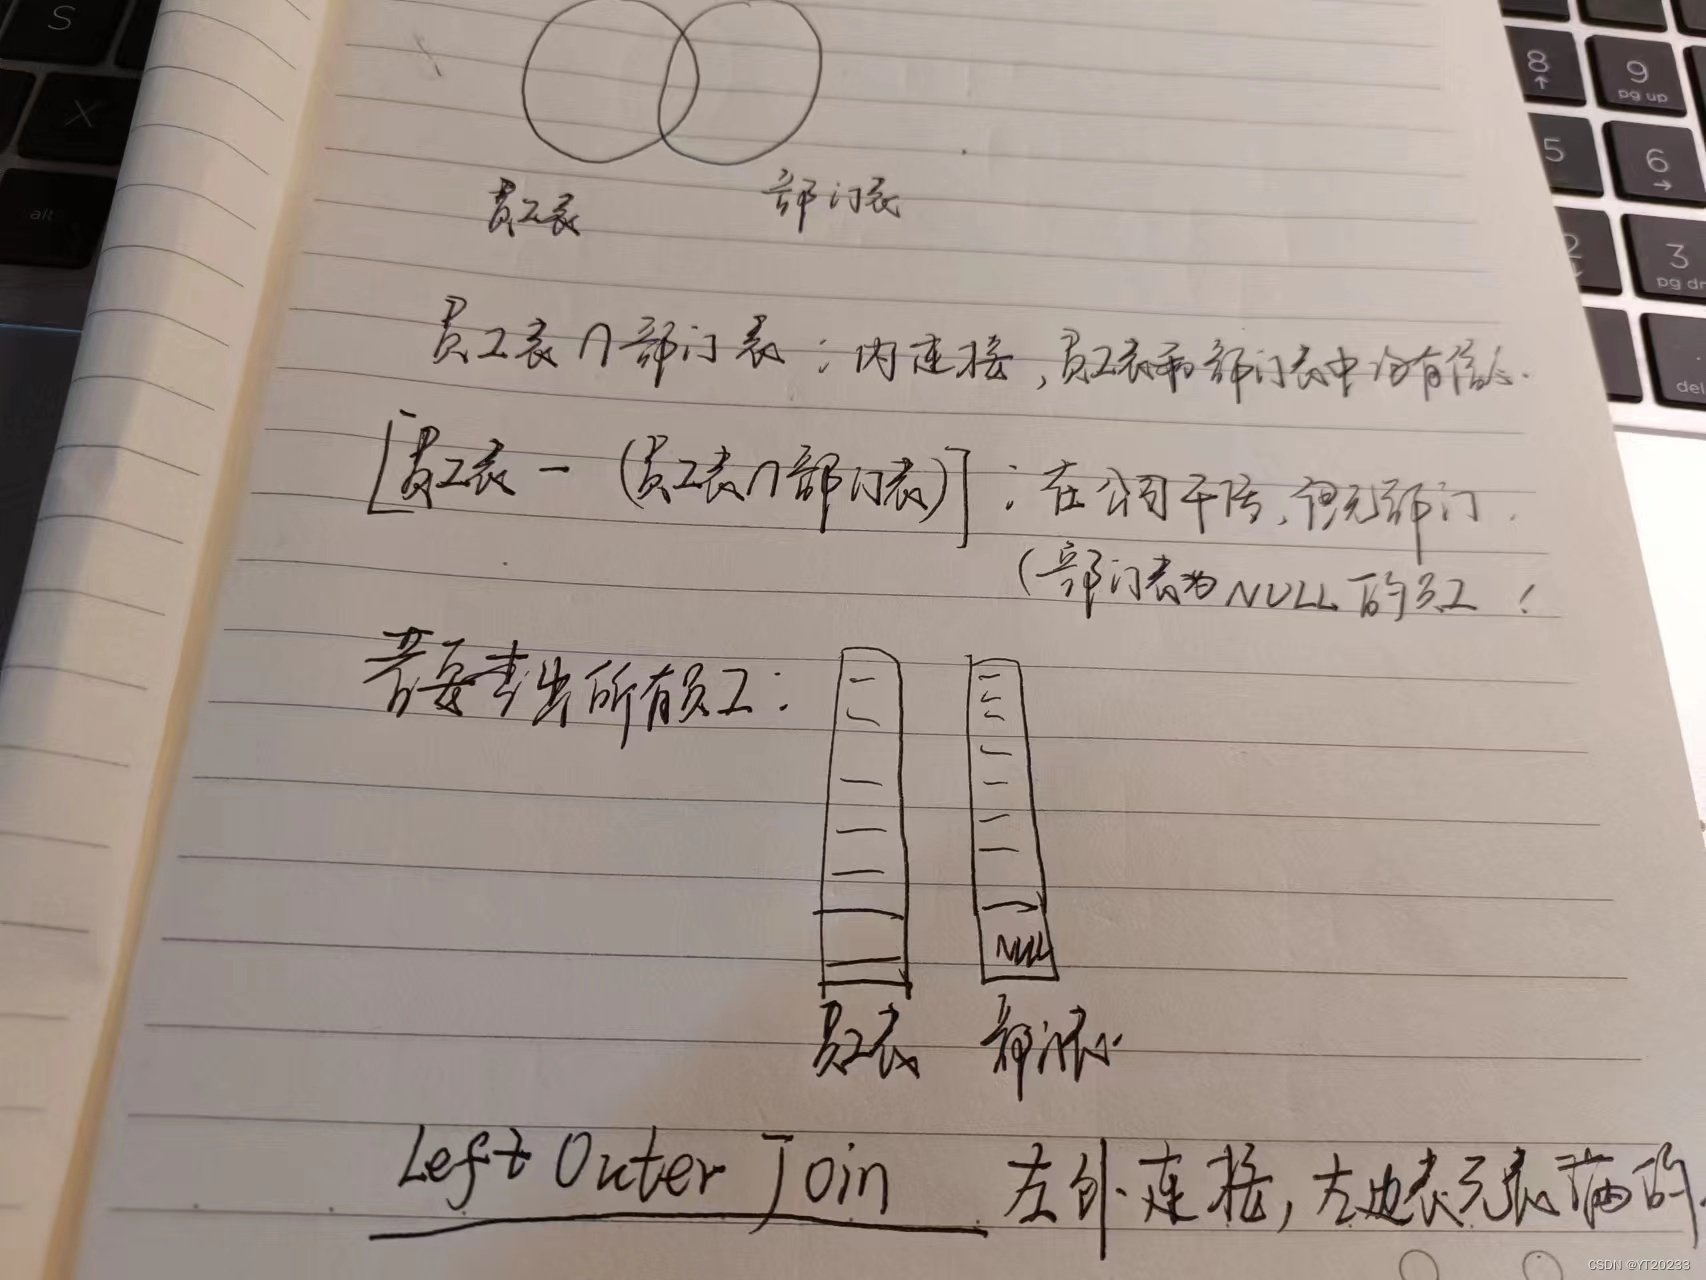 员工表 部门表
员工表∩部门表：内连接，员工表和部门表中均有信息.
[员工表 - (员工表∩部门表)]：在公司干活，但无部门.
(部门表为NULL的员工！
若要查出所有员工：
NULL
员工表 部门表
Left Outer Join 左外连接，左边表无表
S
X
alt
8
9
pg up
5
6
2
3
pg dn
del
CSDN @YT20233